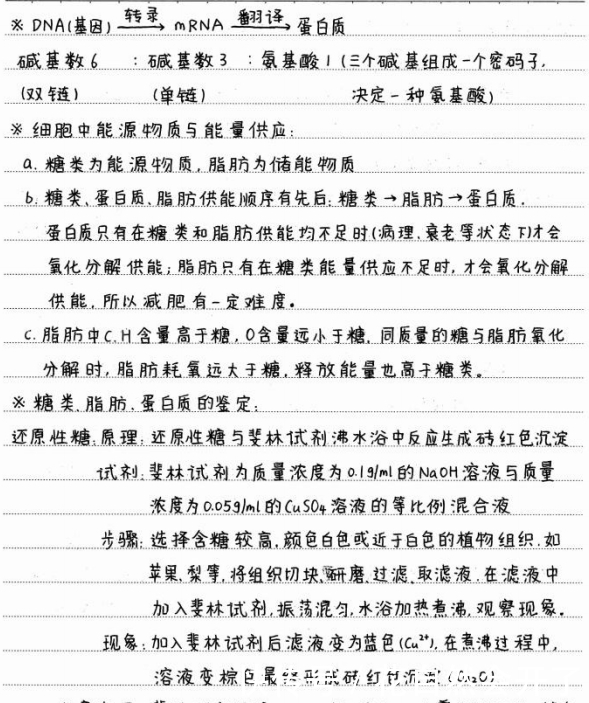 ※ DNA(基因) 转录→ mRNA 翻译→ 蛋白质
碱基数6 : 碱基数3 : 氨基酸1 (三个碱基组成一个密码子,
(双链) (单链) 决定一种氨基酸)
※ 细胞中能源物质与能量供应:
a. 糖类为能源物质,脂肪为储能物质
b. 糖类、蛋白质、脂肪供能顺序有先后:糖类→脂肪→蛋白质.
蛋白质只有在糖类和脂肪供能均不足时(病理、衰老等状态下)才会
氧化分解供能;脂肪只有在糖类能量供应不足时,才会氧化分解
供能,所以减肥有一定难度。
c. 脂肪中C.H含量高于糖,O含量远小于糖,同质量的糖与脂肪氧化
分解时,脂肪耗氧远大于糖,释放能量也高于糖类。
※ 糖类、脂肪、蛋白质的鉴定:
还原性糖:原理:还原性糖与斐林试剂沸水浴中反应生成砖红色沉淀
试剂:斐林试剂为质量浓度为0.1g/ml的NaOH溶液与质量
浓度为0.05g/ml的CuSO₄溶液的等比例混合液
步骤:选择含糖较高,颜色白色或近于白色的植物组织,如
苹果、梨等,将组织切块、研磨、过滤、取滤液,在滤液中
加入斐林试剂,振荡混匀,水浴加热煮沸,观察现象。
现象:加入斐林试剂后滤液变为蓝色(Cu²⁺),在煮沸过程中,
溶液变棕色最终形成砖红色沉淀